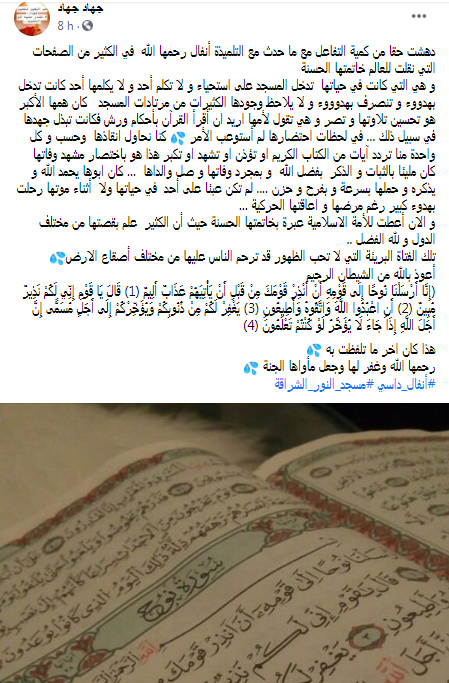 جهاد جهاد
8 h ·
دهشت حقا من كمية التفاعل مع ما حدث مع التلميذة أنفال رحمها الله في الكثير من الصفحات
التي نقلت للعالم خاتمتها الحسنة
و هي التي كانت في حياتها تدخل المسجد على استحياء و لا تكلم أحد و لا يكلمها أحد كانت تدخل
بهدووء و تنصرف بهدوووء و لا يلاحظ وجودها الكثيرات من مرتادات المسجد كان همها الأكبر
هو تحسين تلاوتها و تصر و هي تقول لأمها اريد ان أقرأ القرآن بأحكام ورش فكانت تبذل جهدها
في سبيل ذلك ... في لحظات احتضارها لم أستوعب الأمر 💦 كنا نحاول انقاذها وحسب و كل
واحدة منا تردد آيات من الكتاب الكريم او تؤذن او تشهد او تكبر هذا هو باختصار مشهد وفاتها
كان مليئا بالثبات و الذكر بفضل الله و بمجرد وفاتها و صل والداها ... كان ابوها يحمد الله و
يذكره و حملها بسرعة و بفرح و حزن .... لم تكن عبئا على أحد في حياتها ولا أثناء موتها رحلت
بهدوء كبير رغم مرضها و اعاقتها الحركية ...
و الان أعطت للأمة الاسلامية عبرة بخاتمتها الحسنة حيث أن الكثير علم بقصتها من مختلف
الدول و لله الفضل ..
تلك الفتاة البريئة التي لا تحب الظهور قد ترحم الناس عليها من مختلف أصقاع الارض💦
أعوذ بالله من الشيطان الرجيم
(إِنَّا أَرْسَلْنَا نُوحًا إِلَى قَوْمِهِ أَنْ أَنذِرْ قَوْمَكَ مِن قَبْلِ أَن يَأْتِيَهُمْ عَذَابٌ أَلِيمٌ (1) قَالَ يَا قَوْمِ إِنِّي لَكُمْ نَذِيرٌ
مُّبِينٌ (2) أَنِ اعْبُدُوا اللَّهَ وَاتَّقُوهُ وَأَطِيعُونِ (3) يَغْفِرْ لَكُم مِّن ذُنُوبِكُمْ وَيُؤَخِّرْكُمْ إِلَى أَجَلٍ مُّسَمًّى إِنَّ
أَجَلَ اللَّهِ إِذَا جَاءَ لَا يُؤَخَّرُ لَوْ كُنتُمْ تَعْلَمُونَ (4)
هذا كان اخر ما تلفظت به 💦
رحمها الله وغفر لها وجعل مأواها الجنة 💦
#أنفال_داسي #مسجد_النور_الشراقة
سورة نوح